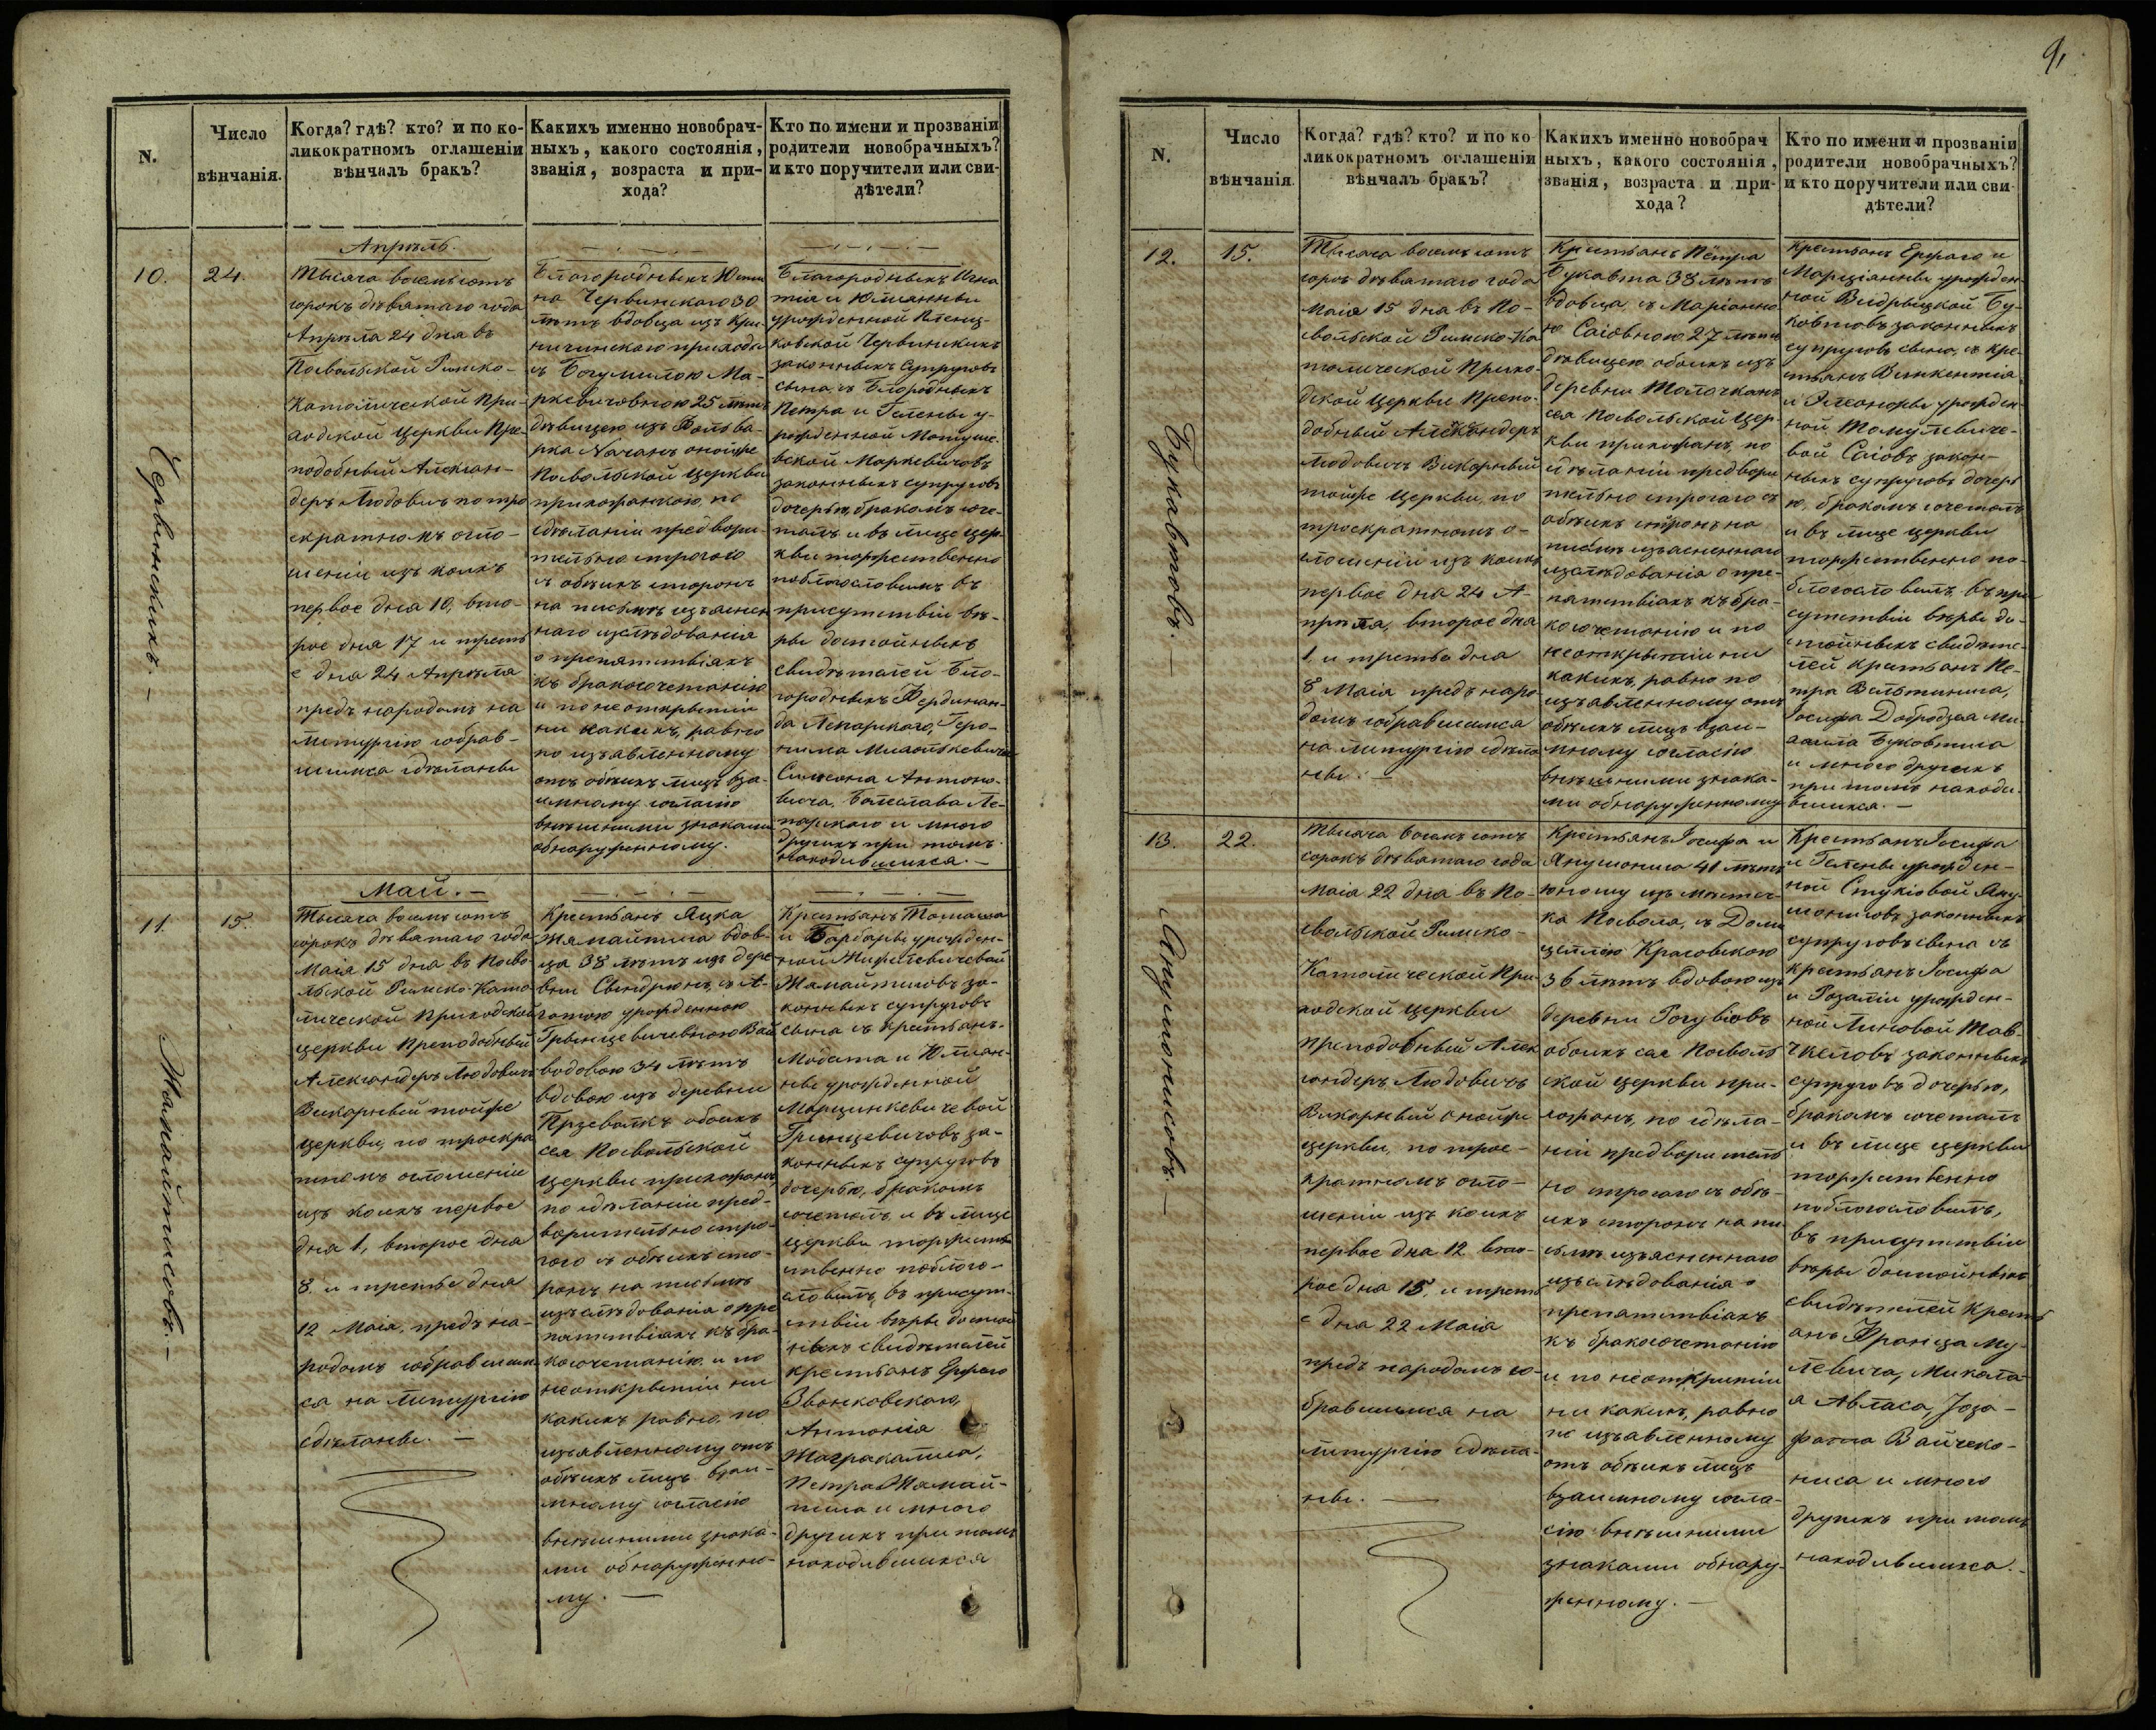 N.
Число
вѣнчанія.
Когда? гдѣ? кто? и по ко-
ликократномъ оглашеніи
вѣнчалъ бракъ?
Какихъ именно новобрач-
ныхъ, какого состоянія,
званія, возраста и при-
хода?
Кто по имени и прозванію
родители новобрачныхъ?
и кто поручители или сви-
дѣтели?
10.
24.
Червинскихъ. —
Апрѣль.
Тысяча восемьсотъ
сорокъ девятаго года
Апрѣля 24 дня въ
Посвольской Римско-
Католической При-
ходской Церкви Пре-
подобный Алексан-
деръ Людовичъ по тро
екратномъ огло-
шеніи изъ коихъ
первое дня 10, вто-
рое дня 17 и треть
е дня 24 Апрѣля
предъ народомъ на
литургію собрав-
шимся сдѣланы
Благородныхъ Юсти
на Червинского 30
лѣтъ вдовца изъ Кри-
ничинского прихода
съ Богумилою Ма-
ркевичовною 25 лѣтъ
дѣвицею изъ Фольва-
рка Начанъ онойже
Посвольской Церкви
прихожанкою, по
сдѣланіи предвори-
тельно строгаго
съ обѣихъ сторонъ
на письмѣ изъяснен
наго изслѣдованія
о препятствіяхъ
къ бракосочетанію
и по неоткрытіи
ни какихъ, равно
по изъявленному
отъ обѣихъ лицъ вза-
имному согласію
внѣшними знаками
обнаруженному.
Благородныхъ Игна
тія и Юліянны
урожденной
Червинскихъ
законныхъ Супруговъ
сына, съ Благородныхъ
Петра и Гелены у-
рожденной Матуше-
вской Маркевичовъ
законныхъ супруговъ
дочерью, бракомъ соче-
талъ и въ лице цер-
кви торжественно
поблагословилъ въ
присутствіи вѣ-
ры достойныхъ
свидѣтелей Бла-
городныхъ Фердинан-
да Лепарского, Геро-
нима
Симеона Антоно-
вича, Болеслава Ле-
парского и много
другихъ при томъ
находившихся. —
11.
15.
Жямайтисовъ. —
Май. —
Тысяча восемьсотъ
сорокъ девятаго года
Маія 15 дня въ Посво-
льской Римско-Като-
лической Приходской
церкви Преподобный
Александеръ Людовичъ
Викарный тойже
церкви, по троекра
тномъ оглошеніи
изъ коихъ первое
дня 1, второе дня
8. и третье дня
12 Маія, предъ на-
родомъ собравшим
ся на Литургію
сдѣланы. —
Крестьянъ Яцка
Жямайтиса вдов-
ца 38 лѣтъ изъ дере-
вни съ А-
гатою урожденною
Гринцевичевною
водовою 34 лѣтъ
вдовою изъ деревни
обоихъ
сея Посвольской
церкви прихожанъ,
по сдѣланіи пред-
варительно стро-
гого съ обѣихъ сто-
ронъ на письмѣ
изъслѣдованія о пре
пятствіяхъ къ бра-
косочетанію, и по
неоткрытіи ни
какихъ равно, по
изъявленному отъ
обѣихъ лицъ взаи-
мному согласію
внѣшними знака-
ми обнаруженно-
му. —
Крестьянъ Томаша
и Барбары урожден-
ной
Жямайтисовъ за-
конныхъ супруговъ
сына съ крестьянъ.
Модеста и Юліян-
ны урожденной
Марцинкевичевой
Гринцевичовъ за-
конныхъ супруговъ
дочерью, бракомъ
сочеталъ и въ лице
церкви торжест-
ственно поблаго-
словилъ, въ присут-
ствіи вѣры достой
ныхъ свидѣтелей
крестьянъ
Звонковского,
Антонія
Петра Жямай-
тиса и много
другихъ при томъ
находившихся
91
N.
Число
вѣнчанія.
Когда? гдѣ? кто? и по ко
ликократномъ оглашеніи
вѣнчалъ бракъ?
Какихъ именно новобрач
ныхъ, какого состоянія,
званія, возраста и при-
хода?
Кто по имени и прозваніи
родители новобрачныхъ?
и кто поручители или сви-
дѣтели?
12.
15.
Букавтовъ. —
Тысяча восемьсотъ
сорок девятаго года
Маія 15 дня въ По-
свольской Римско-Ка
толической Прихо-
дской Церкви Препо-
добный Александеръ
Людовичъ Викарный
тойже Церкви, по
троекратномъ о-
глошеніи изъ коихъ
первое дня 24 А-
прѣля, второе дня
1 и третье дня
8 Маія предъ наро-
домъ собравшимся
на литургію сдѣла
ны. —
Крестьянъ Петра
Букавта 38 лѣтъ
вдовца, съ Маріанно
ю Саіовною 27 лѣтъ
дѣвицею обоихъ изъ
деревни
сея Посвольской Цер
кви прихожанъ, по
сдѣланіи предвори
тельно строгаго съ
обѣихъ сторонъ на
письмѣ изъясненнаго
изслѣдованія о пре-
пятствіяхъ къ бра-
косочетанію и по
неоткрытіи ни
какихъ, равно по
изъявленному отъ
обѣихъ лицъ взаи-
мному согласію
внѣшними знака-
ми обнаруженному
Крестьянъ и
Марціанны урожден
ной Видрыцкой Бу-
ковтовъ законныхъ
супруговъ сына, съ кре-
стьянъ Викентія
и Элеоноры урожден-
ной
Саіовъ закон-
ныхъ супруговъ дочерь
ю, бракомъ сочеталъ
и въ лице церкви
торжественно по-
благословилъ въ при
сутствіи вѣры до-
стойныхъ свидѣте-
лей крестьянъ Пе-
тра
Іосифа Ми-
хаила Буковтиса
и много другихъ
при томъ находи-
вшихся. —
13.
22.
Янушонисовъ. —
Тысяча восемьсотъ
сорокъ девятаго года
Маія 22 дня въ По-
свольской Римско-
Католической При
ходской церкви
преподобный Алек
сандеръ Людовичъ
Викарный онойже
церкви, по трое-
кратномъ огло-
шеніи изъ коихъ
первое дня 12 вто-
рое дня 15, и треть
е дня 22 Маія
предъ народомъ со-
бравшимся на
литургію сдѣла-
ны. —
Крестьянъ Іосифа и
Янушониса 41 лѣтъ
юношу изъ мѣстеч-
ка Посволя, съ Доми
целлею Красовскою
36 лѣтъ вдовою изъ
деревни
обоихъ сея Посволь
ской церкви при-
хожанъ, по сдѣла-
ніи предварительно
но строгаго съ обѣ-
ихъ сторонъ на пи
сьмѣ изъясненнаго
изъслѣдованія о
препятствіяхъ
къ бракосочетанію
и по неоткрытіи
ни какихъ, равно
по изъявленному
отъ обѣихъ лицъ
взаимному согла-
сію внѣшними
знаками обнару-
женному. —
Крестьянъ Іосифа
и Гелены урожден-
ной Стукіовой Яну-
шонисовъ законныхъ
супруговъ сына съ
крестьянъ Іосифа
и Розаліи урожден-
ной
законныхъ
супруговъ дочерью,
бракомъ сочеталъ
и въ лице церкви
торжественно
поблагословилъ,
въ присутствіи
вѣры достойныхъ
свидѣтелей Кресть
янъ Франца Му-
левича, Микола-
я Авласа, Іоза-
фата Вайчеко-
ниса и много
другихъ при томъ
находившихся. —